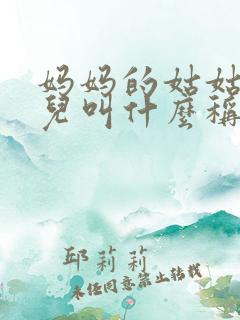 妈妈的姑姑
兒叫什麼稱
邱莉莉
未经同意禁止转载